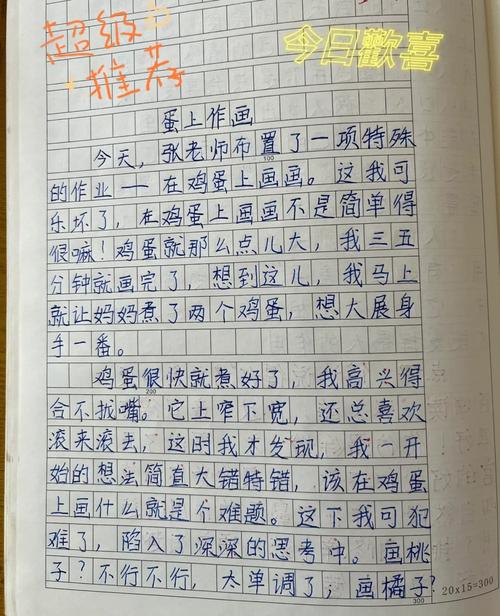 超级
推荐
今日歡喜
蛋上作画
今天，张老师布置了一项特殊
100
的作业——在鸡蛋上画画。这我可
乐坏了，在鸡蛋上画画不是简单得
很嘛！鸡蛋就那么点儿大，我三五
分钟就画完了，想到这儿，我马上
就让妈妈煮了两个鸡蛋，想大展身
手一番。
鸡蛋很快就煮好了，我高兴得
200
合不拢嘴。它上窄下宽，还总喜欢
滚来滚去，这时我才发现，我一开
始的想法简直大错特错，该在鸡蛋
上画什么就是个难题。这下我可犯
难了，陷入了深深的思考中。画桃
子？不行不行，太单调了；画橘子？
300
20x15=300